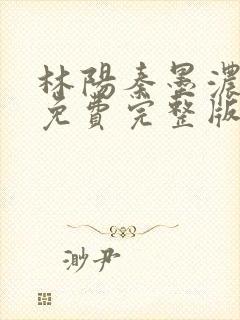 林陽秦墨濃
免費完整版
渺尹